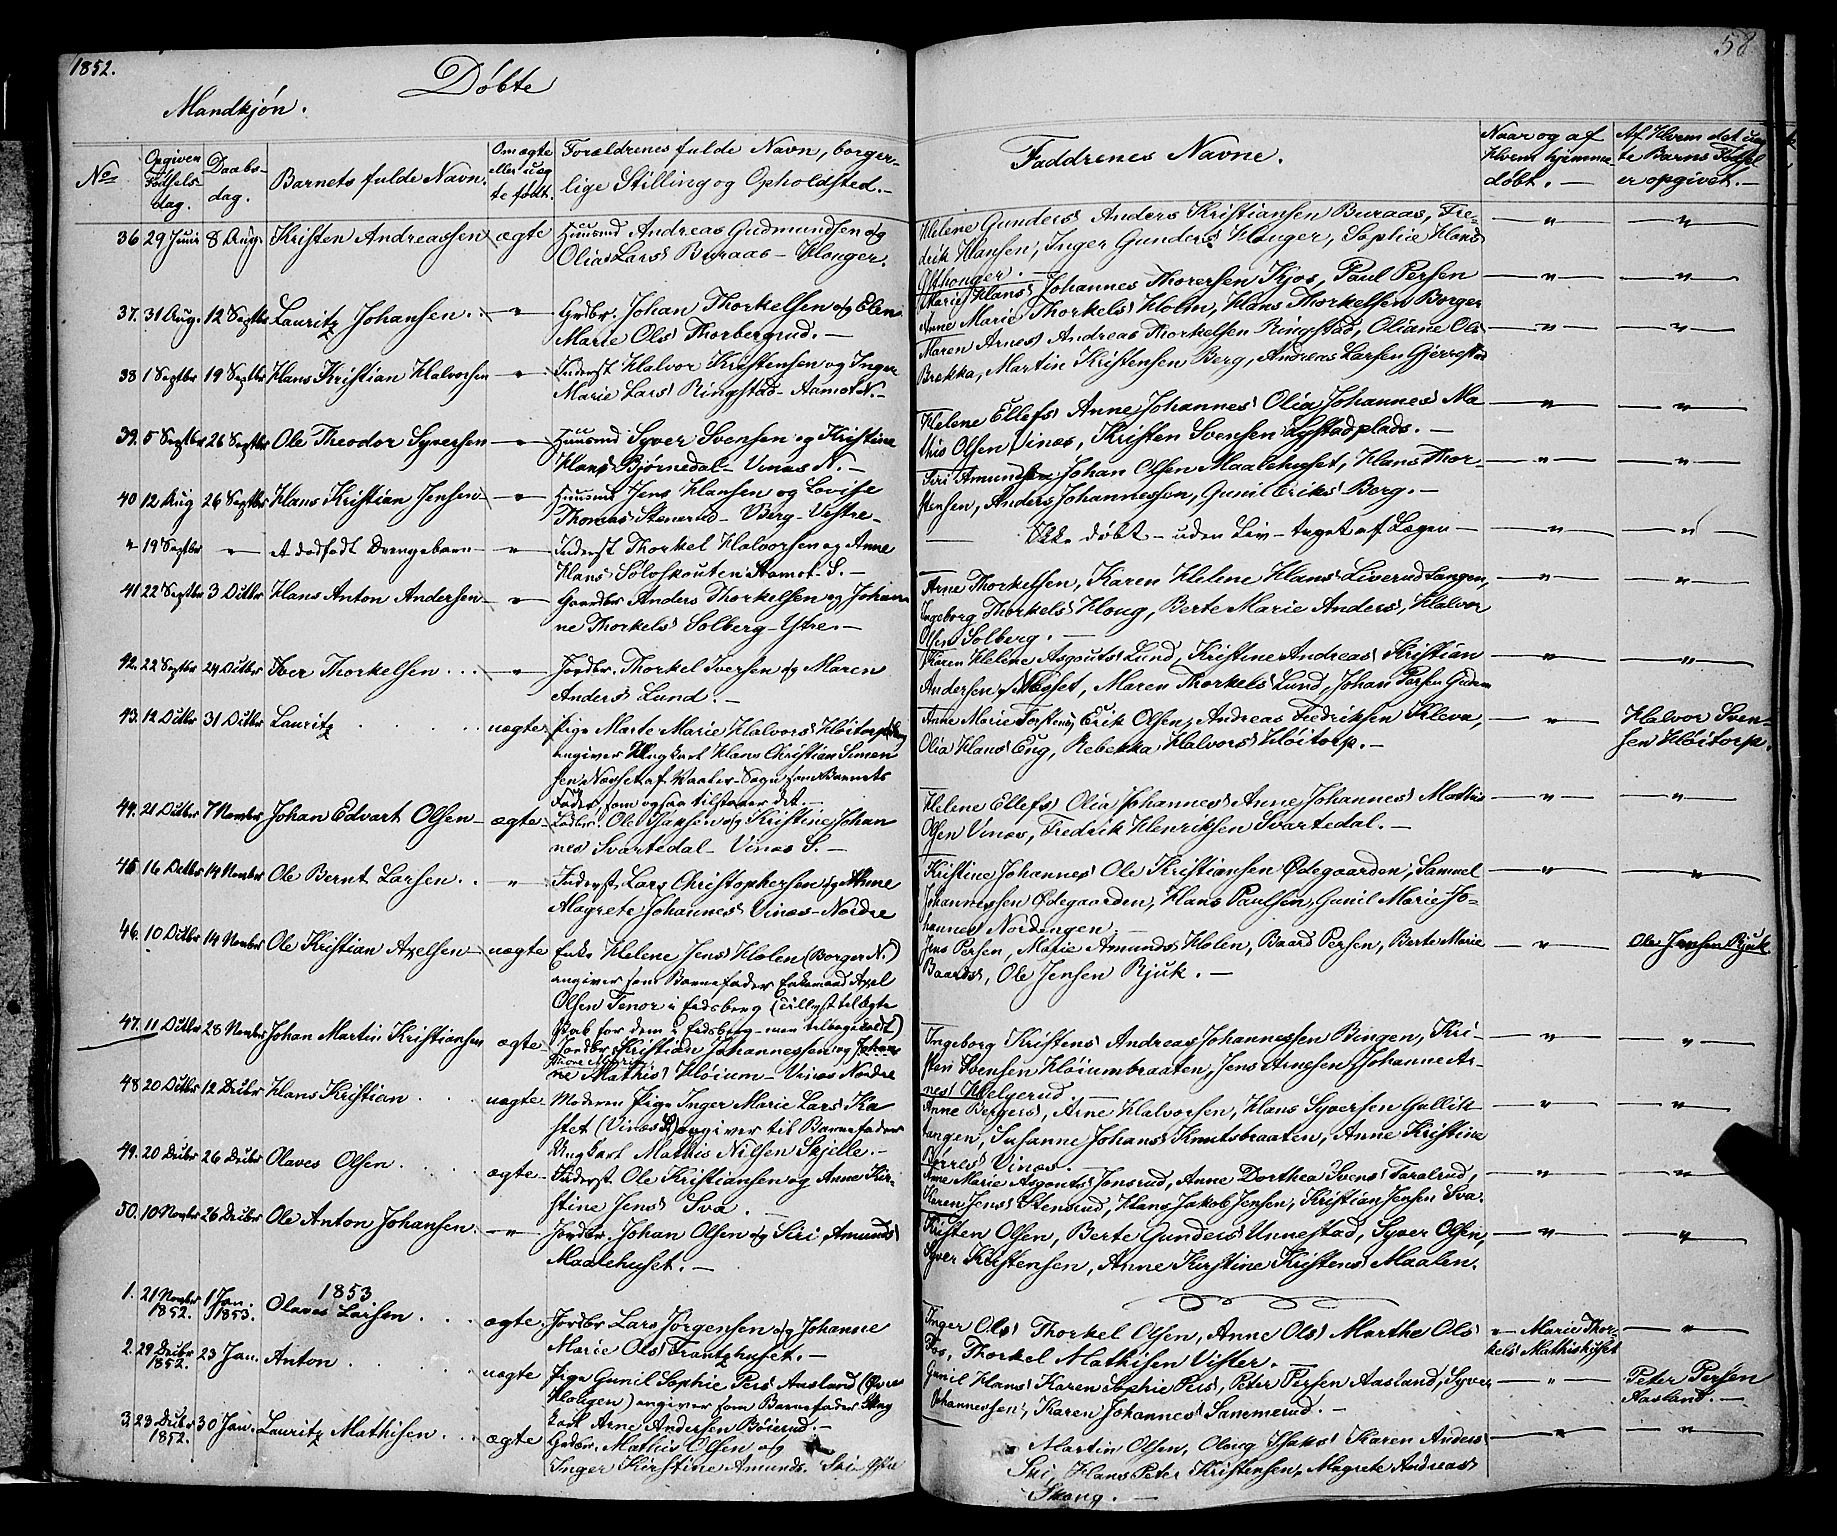 1852.
Døbte
58
Mandkjøn.
No
Opgiven Fødsels-dag.
Daabs-dag.
Barnets fulde Navn.
Om ægte eller uægte født.
Forældrenes fulde Navn, borger-
lige Stilling og Opholdsted.
Faddrenes Navne.
Naar og af Hvem hjemme døbt.
Af Hvem det uægte Barns Fødsel er opgivet.
36 29 Juni 8 Aug. Kristen Andreassen ægte Huusmd Andreas Gudmundsen og
Olia Lars' Buraas - Honger.
Helene Gunders' Anders Kristiansen Buraas, Fre-
drik Hansen, Inger Gunders' Honger, Sophie Hans'
37. 31 Aug. 12 Septbr Lauritz Johansen. Grdbr. Johan Thorkelsen og Elen
Marie Ols' Thorbergrud.
Marie Hans' Johannes Thorersen Kjos, Paul Persen
Anne Marie Thorkels' Holm, Hans Thorkelsen Borger
38 1 Septbr 19 Septbr Hans Kristian Halvorsen Inderst Halvor Kristensen og Inger
Marie Lars' Ringstad - Aamot N.
Maren Arnes' Andreas Thorkelsen Ringstad, Oliane Ols'
Brekka, Martin Kristensen Berg, Andreas Larsen Gjerrestad
39. 5 Septbr 26 Septbr Ole Theodor Syversen Huusmd Syver Svensen og Kristine
Hans' Bjørnedal - Vinæs N.
Helene Ellefs' Anne Johannes' Olia Johannes' Ma-
this Olsen Vinæs, Kristen Svensen plads.
40 12 Aug 26 Septbr Hans Kristian Jensen Huusmd Jens Hansen og Lovise
Thomas' Stenerud - Berg - Vestre
Siri Amunds Johan Olsen Maalehuset, Hans Thor-
stensen, Anders Johannessen, Gunil Eriks' Berg.
" 19 Septbr A dødfødt Drengebarn Inderst Thorkel Halvorsen og Anne
Hans' Aamot - S.
Ikke døbt - uden Liv - taget af Lægen
41 22 Septbr 3 Octbr Hans Anton Andersen Gaardbr Anders Thorkelsen og Johan
ne Thorkels' Solberg - Ytre.
Arne Thorkelsen, Karen Helene Hans' Liverud Langen,
Ingeborg Thorkels' Haug, Berte Marie Anders', Halvor
Olsen Solberg.
42. 22 Septbr 24 Octbr Iver Thorkelsen Jordbr. Thorkel Iversen og Maren
Anders' Lund.
Karen Helene Asgouts' Lund, Kristine Andreas' Kristian
Andersen Næsset, Maren Thorkels' Lund, Johan Persen
43. 12 Octbr 31 Octbr Lauritz uægte Pige Marte Marie Halvors' Høitorp
angiver Ungkarl Hans Christian Simen
sen Næsset af Vaaler-Sogn som Barnets
Fader, som ogsaa tilstaaer det.
Anne Marie Torstens' Erik Olsen, Andreas Fredriksen Kleva,
Olia Hans' Eng, Rebekka Halvors' Høitorp.
Halvor Sven-
sen Høitorp.
44. 21 Octbr 7 Novmber Johan Edvart Olsen ægte Ole Jensen og Kristine Johan
nes' Svartedal - Vinæs S.
Helene Ellefs' Olia Johannes' Anne Johannes' Mathis
Olsen Vinæs, Fredrik Henriksen Svartedal.
45 16 Octbr 14 Novmber Ole Bernt Larsen. Inderst Lars Christophersen og Anne
Magrete Johannes' Vinæs - Nordre
Kristine Johannes' Ole Kristiansen Ødegaarden, Samuel
Johannessen Ødegaarden, Hans Paulsen, Gunil Marie Jo-
hannes' Nordengen.
46. 10 Octbr 14 Novmber Ole Kristian Axelsen uægte Enke Helene Jens' Holen (Borger N.)
angiver som Barnefader Enkemand Axel
Olsen Tenor i Eidsberg (tillyst til Ægte
skab for dem i Eidsberg - men tilbagekaldt)
Jens Persen, Marie Amunds' Holen, Baard Persen, Berte Marie
Baards', Ole Jensen Rjuk.
Ole Jensen Rjuk
47. 11 Octbr 28 Novmber Johan Martin Kristiansen ægte Jordbr. Kristian Johannessen og Johan
ne Mathis' Høium - Vinæs Nordre
Ingeborg Kristens' Andreas Johannessen Ringen, Kri-
sten Svensen Høiumbraaten, Jens Arnesen, Johanne Ar-
nes' Helgerud.
48 20 Octbr 12 Decbr Hans Kristian uægte Moderen Pige Inger Marie Lars' Ka
stet (Vinæs S) angiver til Barnefader
Ungkarl Mathis Nilsen Skjelle.
Anne Bergers', Arne Halvorsen, Hans Syversen Gallik
tangen, Susanne Johans' Knutsbraaten, Anne Kristine
Vinæs.
49. 20 Decbr 26 Decbr Olaves Olsen. ægte Inderst Ole Kristiansen og Anne Kir-
stine Jens' Sva.
Anne Marie Asgouts' Jonsrud, Anne Dorthea Svens' Taralrud,
Karen Jens' Stensrud, Hans Jakob Jensen, Kristian Jensen Sva.
50. 10 Novmber 26 Decbr Ole Anton Johansen. Jordbr. Johan Olsen og Siri Amunds'
Maalehuset.
Kristen Olsen, Berte Gunders' Unnestad, Syver Olsen,
Syver Kristensen, Anne Kirstine Kristens' Maalen.
1853
1. 21 Novmber 1852. 1 Jan. 1853. Olaves Larsen ægte. Jordbr Lars Jørgensen og Johanne
Marie Ols' Frantzhuset.
Inger Ols' Thorkel Olsen, Anne Ols' Marthe Ols'
Foss, Thorkel Mathisen Vister.
Marie Thor-
kels' Mathishuset
2. 29 Decbr 1852. 23 Jan. Anton uægte Pige Gunil Sophie Pers' Aasland
angiver som Barnefader Ung
karl Arne Andersen Bøierud.
Gunil Hans' Karen Sophie Pers', Peter Persen Aasland, Syver
Johannessen, Karen Johannes' Sammerud.
Peter Persen
Aasland.
3. 23 Decbr 1852. 30 Jan. Lauritz Mathisen. ægte Grdbr. Mathis Olsen og
Inger Kirstine Amunds. Ski - Ytre
Martin Olsen, Olaug Isaks' Karen Anders'
Ski, Hans Peter Kristensen, Magrete Andreas'
Skoug.